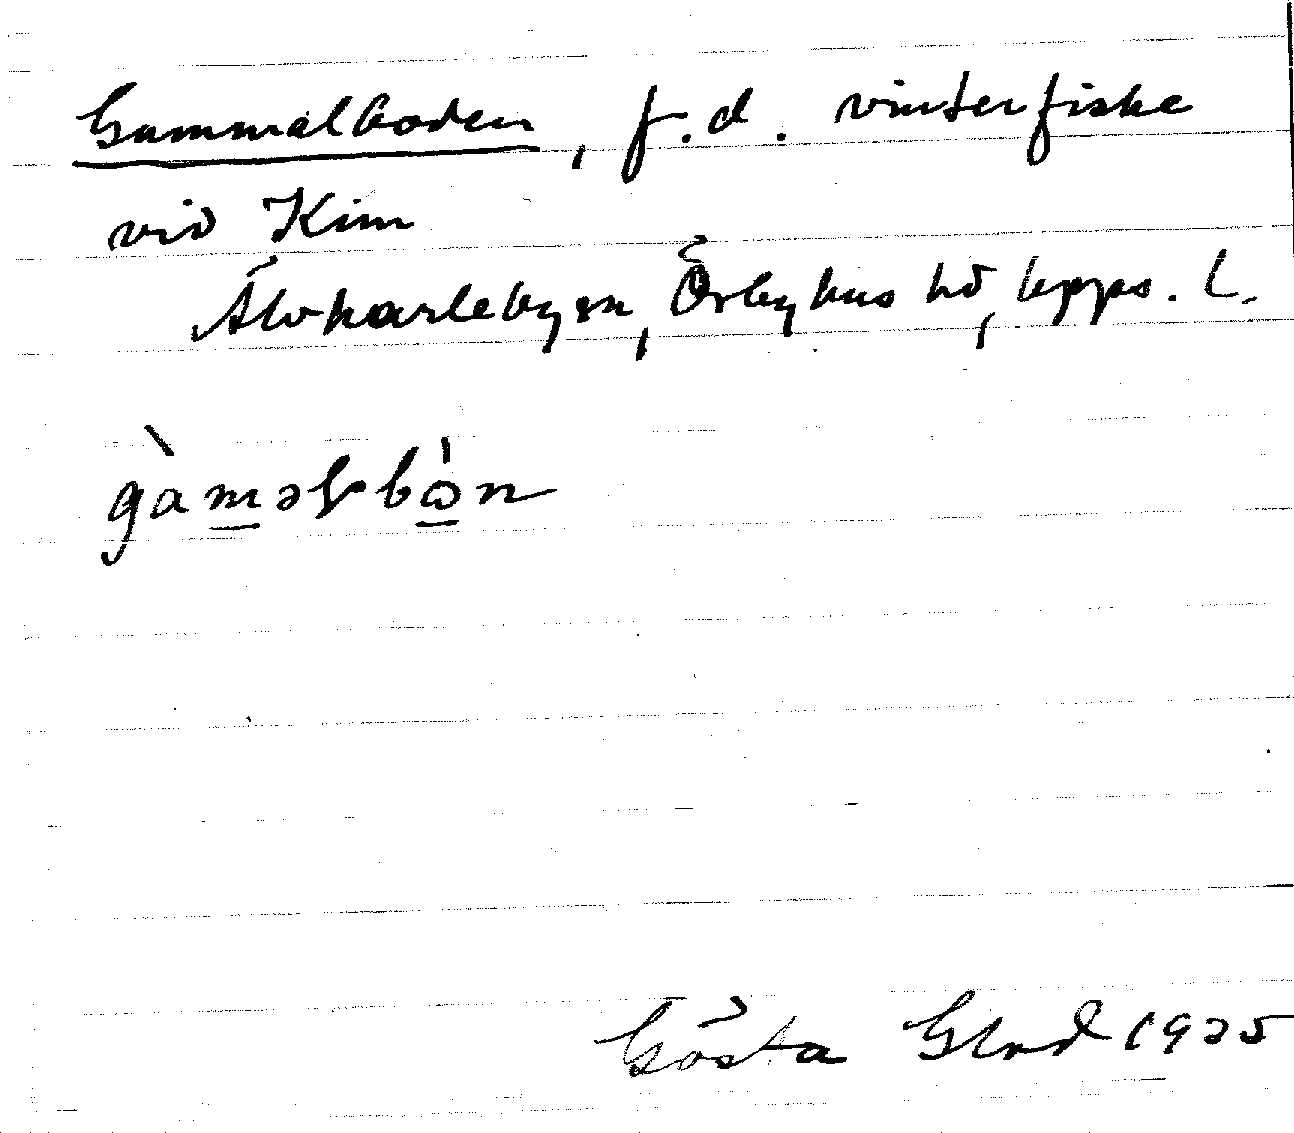 Gammalboden, f.d. vinterfiske
vid Kim
Älvkarleby sn, Örbyhus hd, Upps. l.
gàməɫbòn
Gösta 1935